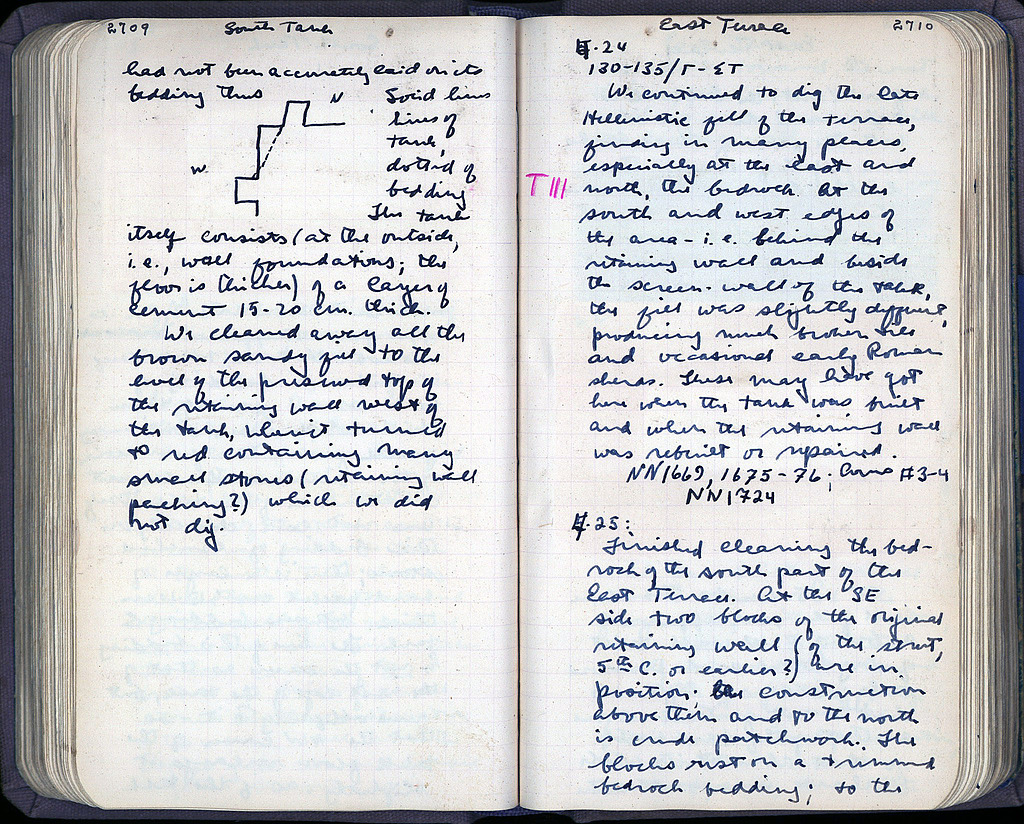 2709 South Tank
had not been accurately laid on its
bedding thus
N
W
Solid lines
lines of
tank,
dotted of
bedding
The tank
itself consists (at the outside,
i.e., wall foundations; the
floor is thicker) of a layer of
cement 15-20 cm. thick.
We cleared away all the
brown sandy fill to the
level of the presumed top of
the retaining wall west of
the tank, where it turned
to red containing many
small stones (retaining wall
packing?) which we did
not dig.
East Terrace 2710
24
130-135/Γ-ΣΤ
We continued to dig the late
Hellenistic fill of the terrace,
finding in many places,
especially at the east and
T III
north, the bedrock. At the
south and west edges of
the area - i.e. behind the
retaining wall and beside
the screen-wall of the tank,
the fill was slightly different,
producing much broken tiles
and occasional early Roman
sherds. These may have got
here when the tank was built
and when the retaining wall
was rebuilt or repaired.
NN1669, 1675-76; Coins #3-4
NN1724
25:
Finished cleaning the bed-
rock of the south part of the
East Terrace. At the SE
side two blocks of the original
retaining wall (of the street,
5th C. or earlier?) are in
position; the construction
above them and to the north
is crude patchwork. The
blocks rest on a trimmed
bedrock bedding; to the